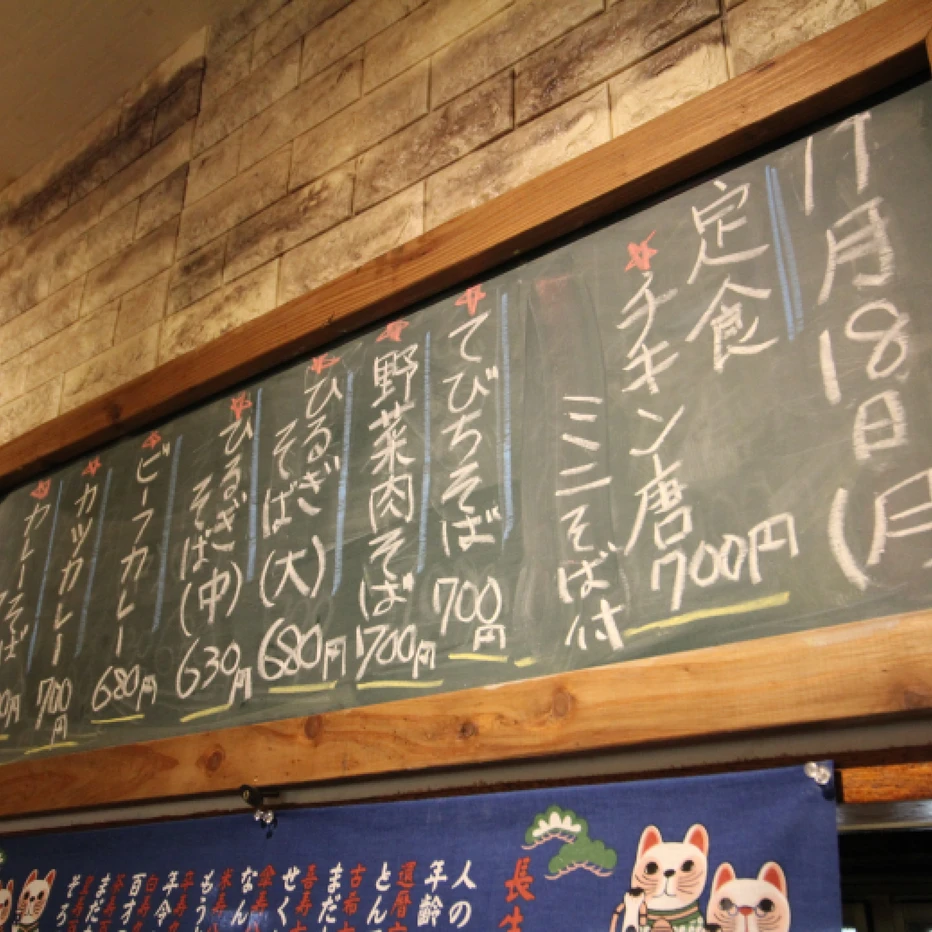 11月18日(月
定食
チキン唐 700円
ミニそば付
てびちそば 700円
野菜肉そば 700円
ひるぎそば(大) 680円
ひるぎそば(中) 630円
ビーフカレー 680円
カツカレー 700円
カレーそば
長生
人の
年齢
還暦
とん
古希
まだ
喜寿
せく
傘寿
なん
米寿
もう
卒寿
年令
白寿
百才
茶寿
まだ
皇寿
そろ